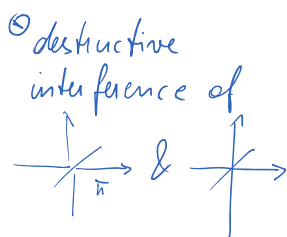 destructive
interference of
&